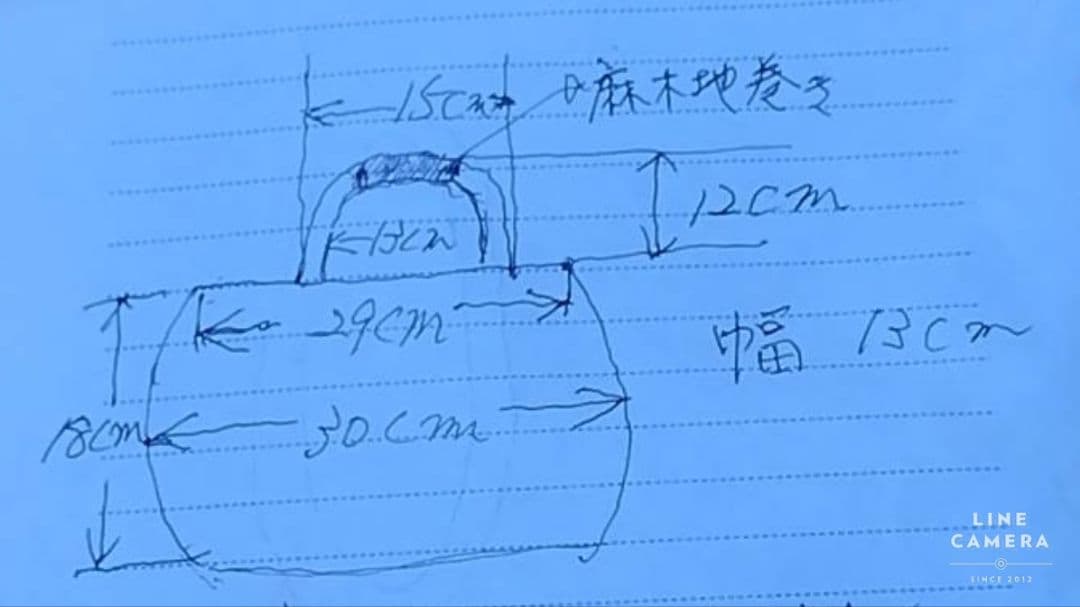 15cm
麻木地巻き
12cm
13cm
29cm
幅 13cm
18cm
30cm
LINE
CAMERA
SINCE 2012